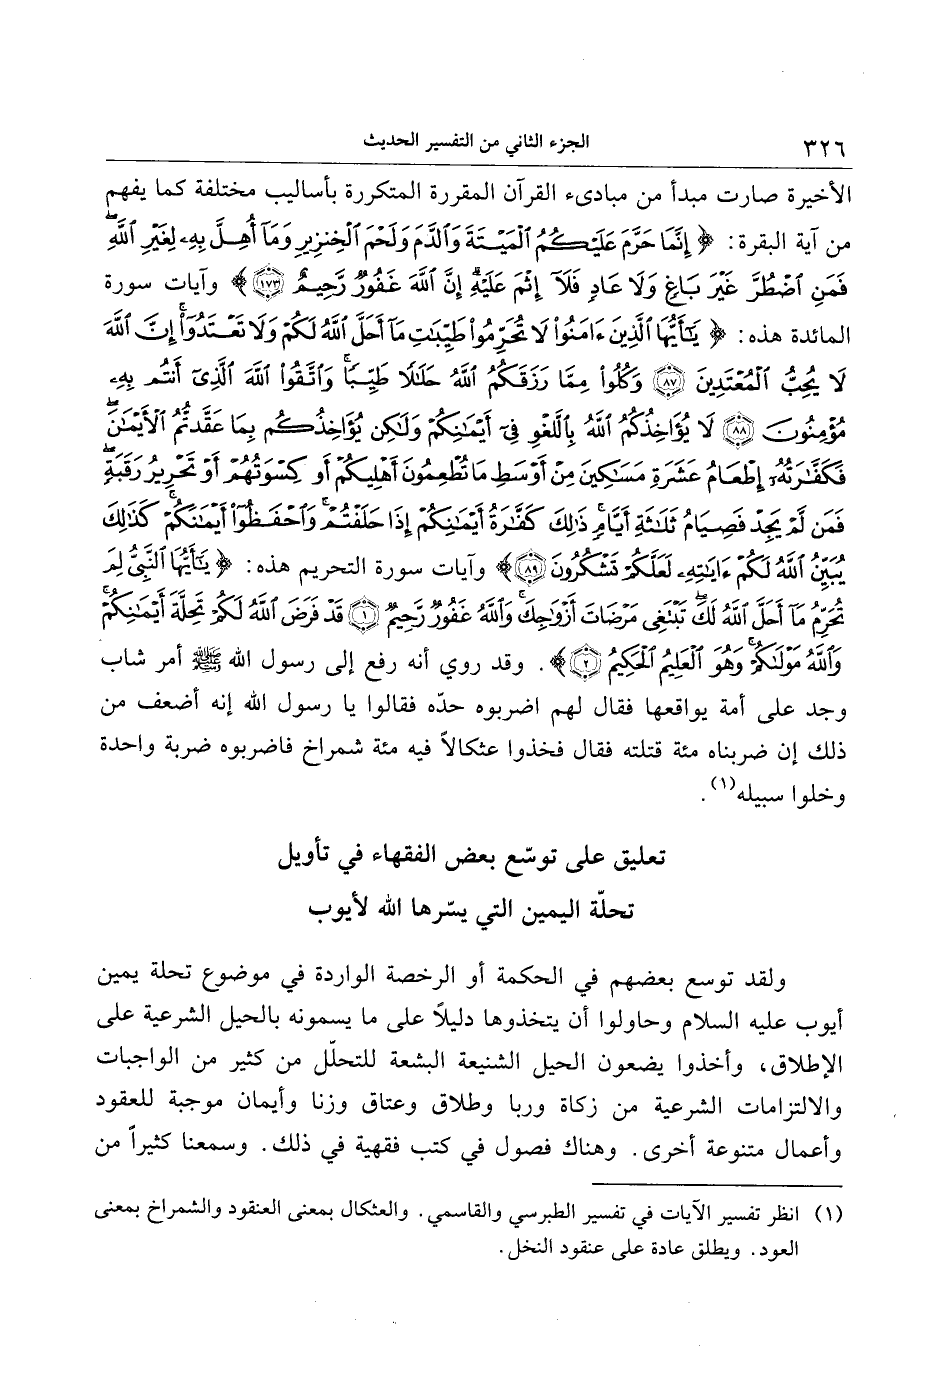 ٣٢٦
الجزء الثاني من التفسير الحديث
الأخيرة صارت مبدأ من مبادىء القرآن المقررة المتكررة بأساليب مختلفة كما يفهم
من آية البقرة: ﴿ إِنَّمَا حَرَّمَ عَلَيْكُمُ الْمَيْتَةَ وَالدَّمَ وَلَحْمَ الْخِنزِيرِ وَمَا أُهِلَّ بِهِ لِغَيْرِ اللَّهِ
فَمَنِ اضْطُرَّ غَيْرَ بَاغٍ وَلَا عَادٍ فَلَا إِثْمَ عَلَيْهِ إِنَّ اللَّهَ غَفُورٌ رَّحِيمٌ ١٧٣ ﴾ وآيات سورة
المائدة هذه: ﴿ يَا أَيُّهَا الَّذِينَ ءَامَنُوا لَا تُحَرِّمُوا طَيِّبَاتِ مَا أَحَلَّ اللَّهُ لَكُمْ وَلَا تَعْتَدُوا إِنَّ اللَّهَ
لَا يُحِبُّ الْمُعْتَدِينَ ٨٧ وَكُلُوا مِمَّا رَزَقَكُمُ اللَّهُ حَلَالًا طَيِّبًا وَاتَّقُوا اللَّهَ الَّذِي أَنتُم بِهِ
مُؤْمِنُونَ ٨٨ لَا يُؤَاخِذُكُمُ اللَّهُ بِاللَّغْوِ فِي أَيْمَانِكُمْ وَلَٰكِن يُؤَاخِذُكُم بِمَا عَقَّدتُّمُ الْأَيْمَانَ
فَكَفَّارَتُهُ إِطْعَامُ عَشَرَةِ مَسَاكِينَ مِنْ أَوْسَطِ مَا تُطْعِمُونَ أَهْلِيكُمْ أَوْ كِسْوَتُهُمْ أَوْ تَحْرِيرُ رَقَبَةٍ
فَمَن لَّمْ يَجِدْ فَصِيَامُ ثَلَاثَةِ أَيَّامٍ ذَٰلِكَ كَفَّارَةُ أَيْمَانِكُمْ إِذَا حَلَفْتُمْ وَاحْفَظُوا أَيْمَانَكُمْ كَذَٰلِكَ
يُبَيِّنُ اللَّهُ لَكُمْ ءَايَاتِهِ لَعَلَّكُمْ تَشْكُرُونَ ٨٩ ﴾ وآيات سورة التحريم هذه: ﴿ يَا أَيُّهَا النَّبِيُّ لِمَ
تُحَرِّمُ مَا أَحَلَّ اللَّهُ لَكَ تَبْتَغِي مَرْضَاتَ أَزْوَاجِكَ وَاللَّهُ غَفُورٌ رَّحِيمٌ ١ قَدْ فَرَضَ اللَّهُ لَكُمْ تَحِلَّةَ أَيْمَانِكُمْ
وَاللَّهُ مَوْلَاكُمْ وَهُوَ الْعَلِيمُ الْحَكِيمُ ٢ ﴾. وقد روي أنه رفع إلى رسول الله ﷺ أمر شاب
وجد على أمة يواقعها فقال لهم اضربوه حدّه فقالوا يا رسول الله إنه أضعف من
ذلك إن ضربناه مئة قتلته فقال فخذوا عثكالاً فيه مئة شمراخ فاضربوه ضربة واحدة
وخلوا سبيله(١).
تعليق على توسّع بعض الفقهاء في تأويل
تحلّة اليمين التي يسّرها الله لأيوب
ولقد توسع بعضهم في الحكمة أو الرخصة الواردة في موضوع تحلة يمين
أيوب عليه السلام وحاولوا أن يتخذوها دليلاً على ما يسمونه بالحيل الشرعية على
الإطلاق، وأخذوا يضعون الحيل الشنيعة البشعة للتحلّل من كثير من الواجبات
والالتزامات الشرعية من زكاة وربا وطلاق وعتاق وزنا وأيمان موجبة للعقود
وأعمال متنوعة أخرى. وهناك فصول في كتب فقهية في ذلك. وسمعنا كثيراً من
(١) انظر تفسير الآيات في تفسير الطبرسي والقاسمي. والعثكال بمعنى العنقود والشمراخ بمعنى
العود. ويطلق عادة على عنقود النخل.